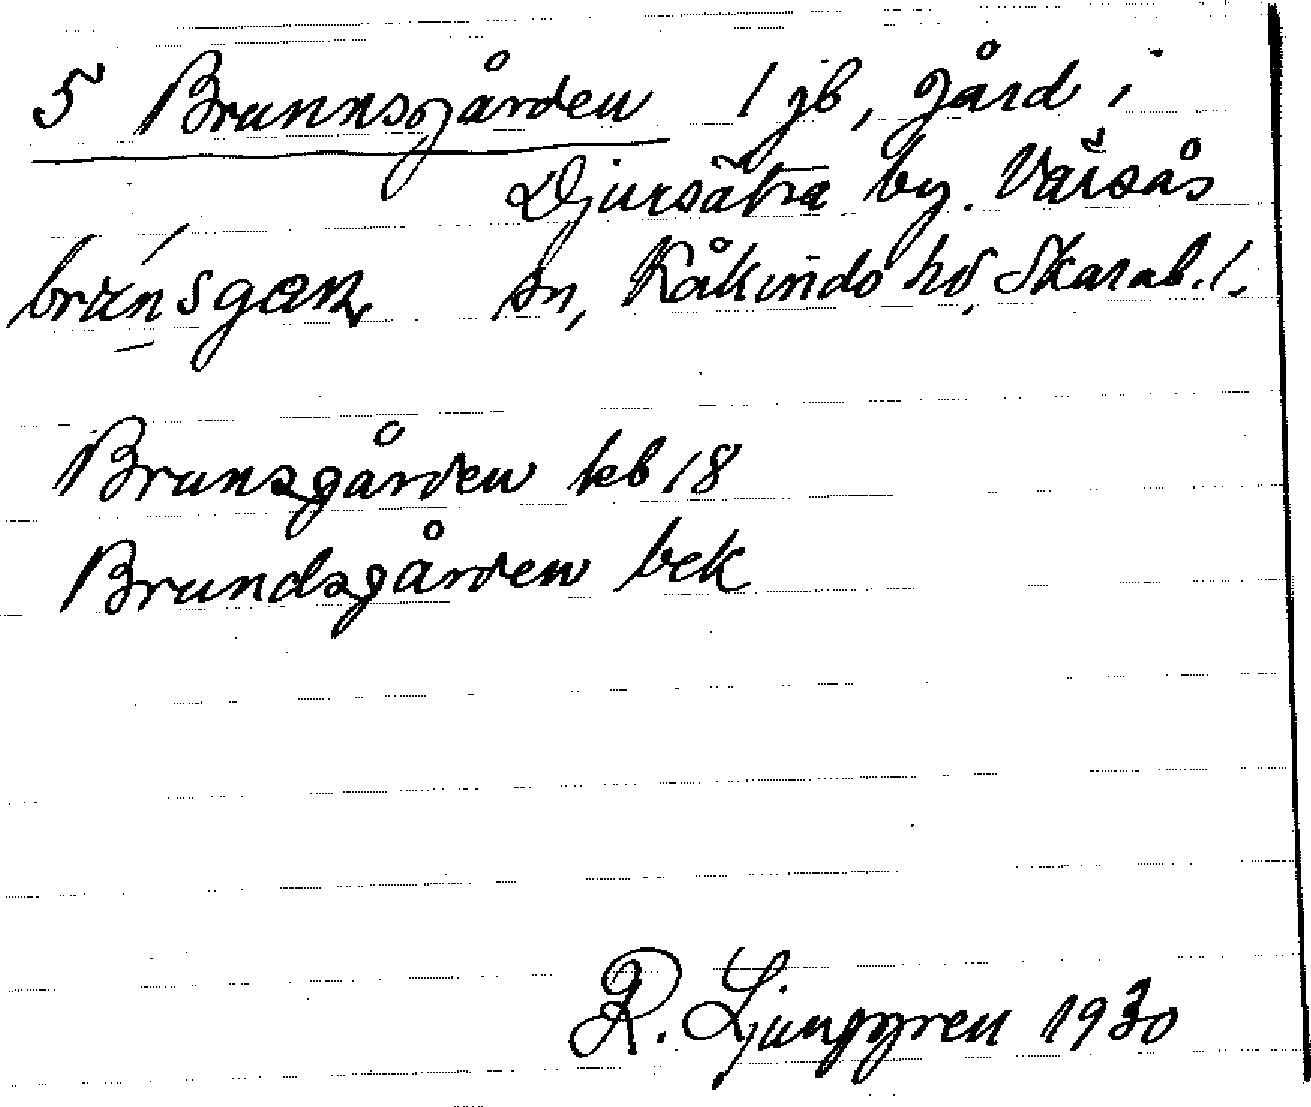 5 Brunnsgården 1 jb, gård i
Djursätra by. Värsås
sn, Kåkinds hd, Skarab. l.
Brunsgården kb 18
Brundsgården bek
R. Ljunggren 1930